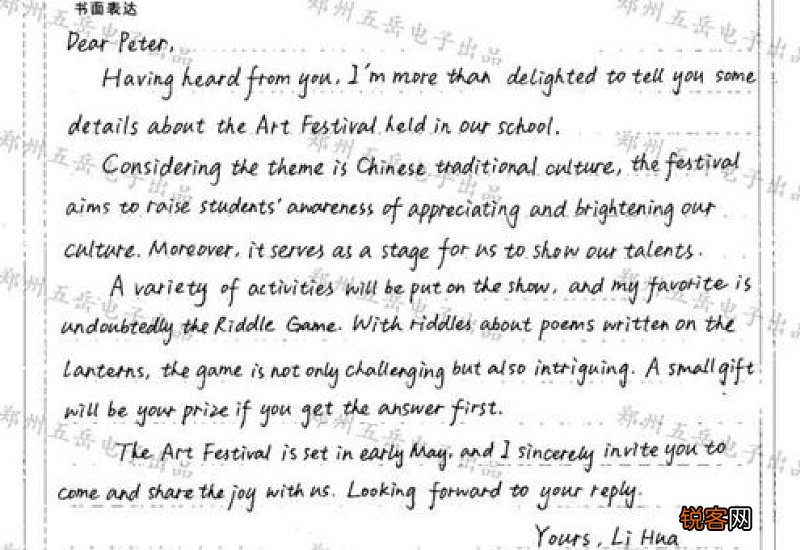 书面表达
Dear Peter,
Having heard from you, I'm more than delighted to tell you some
details about the Art Festival held in our school.
Considering the theme is Chinese traditional culture, the festival
aims to raise students' awareness of appreciating and brightening our
culture. Moreover, it serves as a stage for us to show our talents.
A variety of activities will be put on the show, and my favorite is
undoubtedly the Riddle Game. With riddles about poems written on the
lanterns, the game is not only challenging but also intriguing. A small gift
will be your prize if you get the answer first.
The Art Festival is set in early May, and I sincerely invite you to
come and share the joy with us. Looking forward to your reply.
Yours, Li Hua
郑州五岳电子出品
锐客网